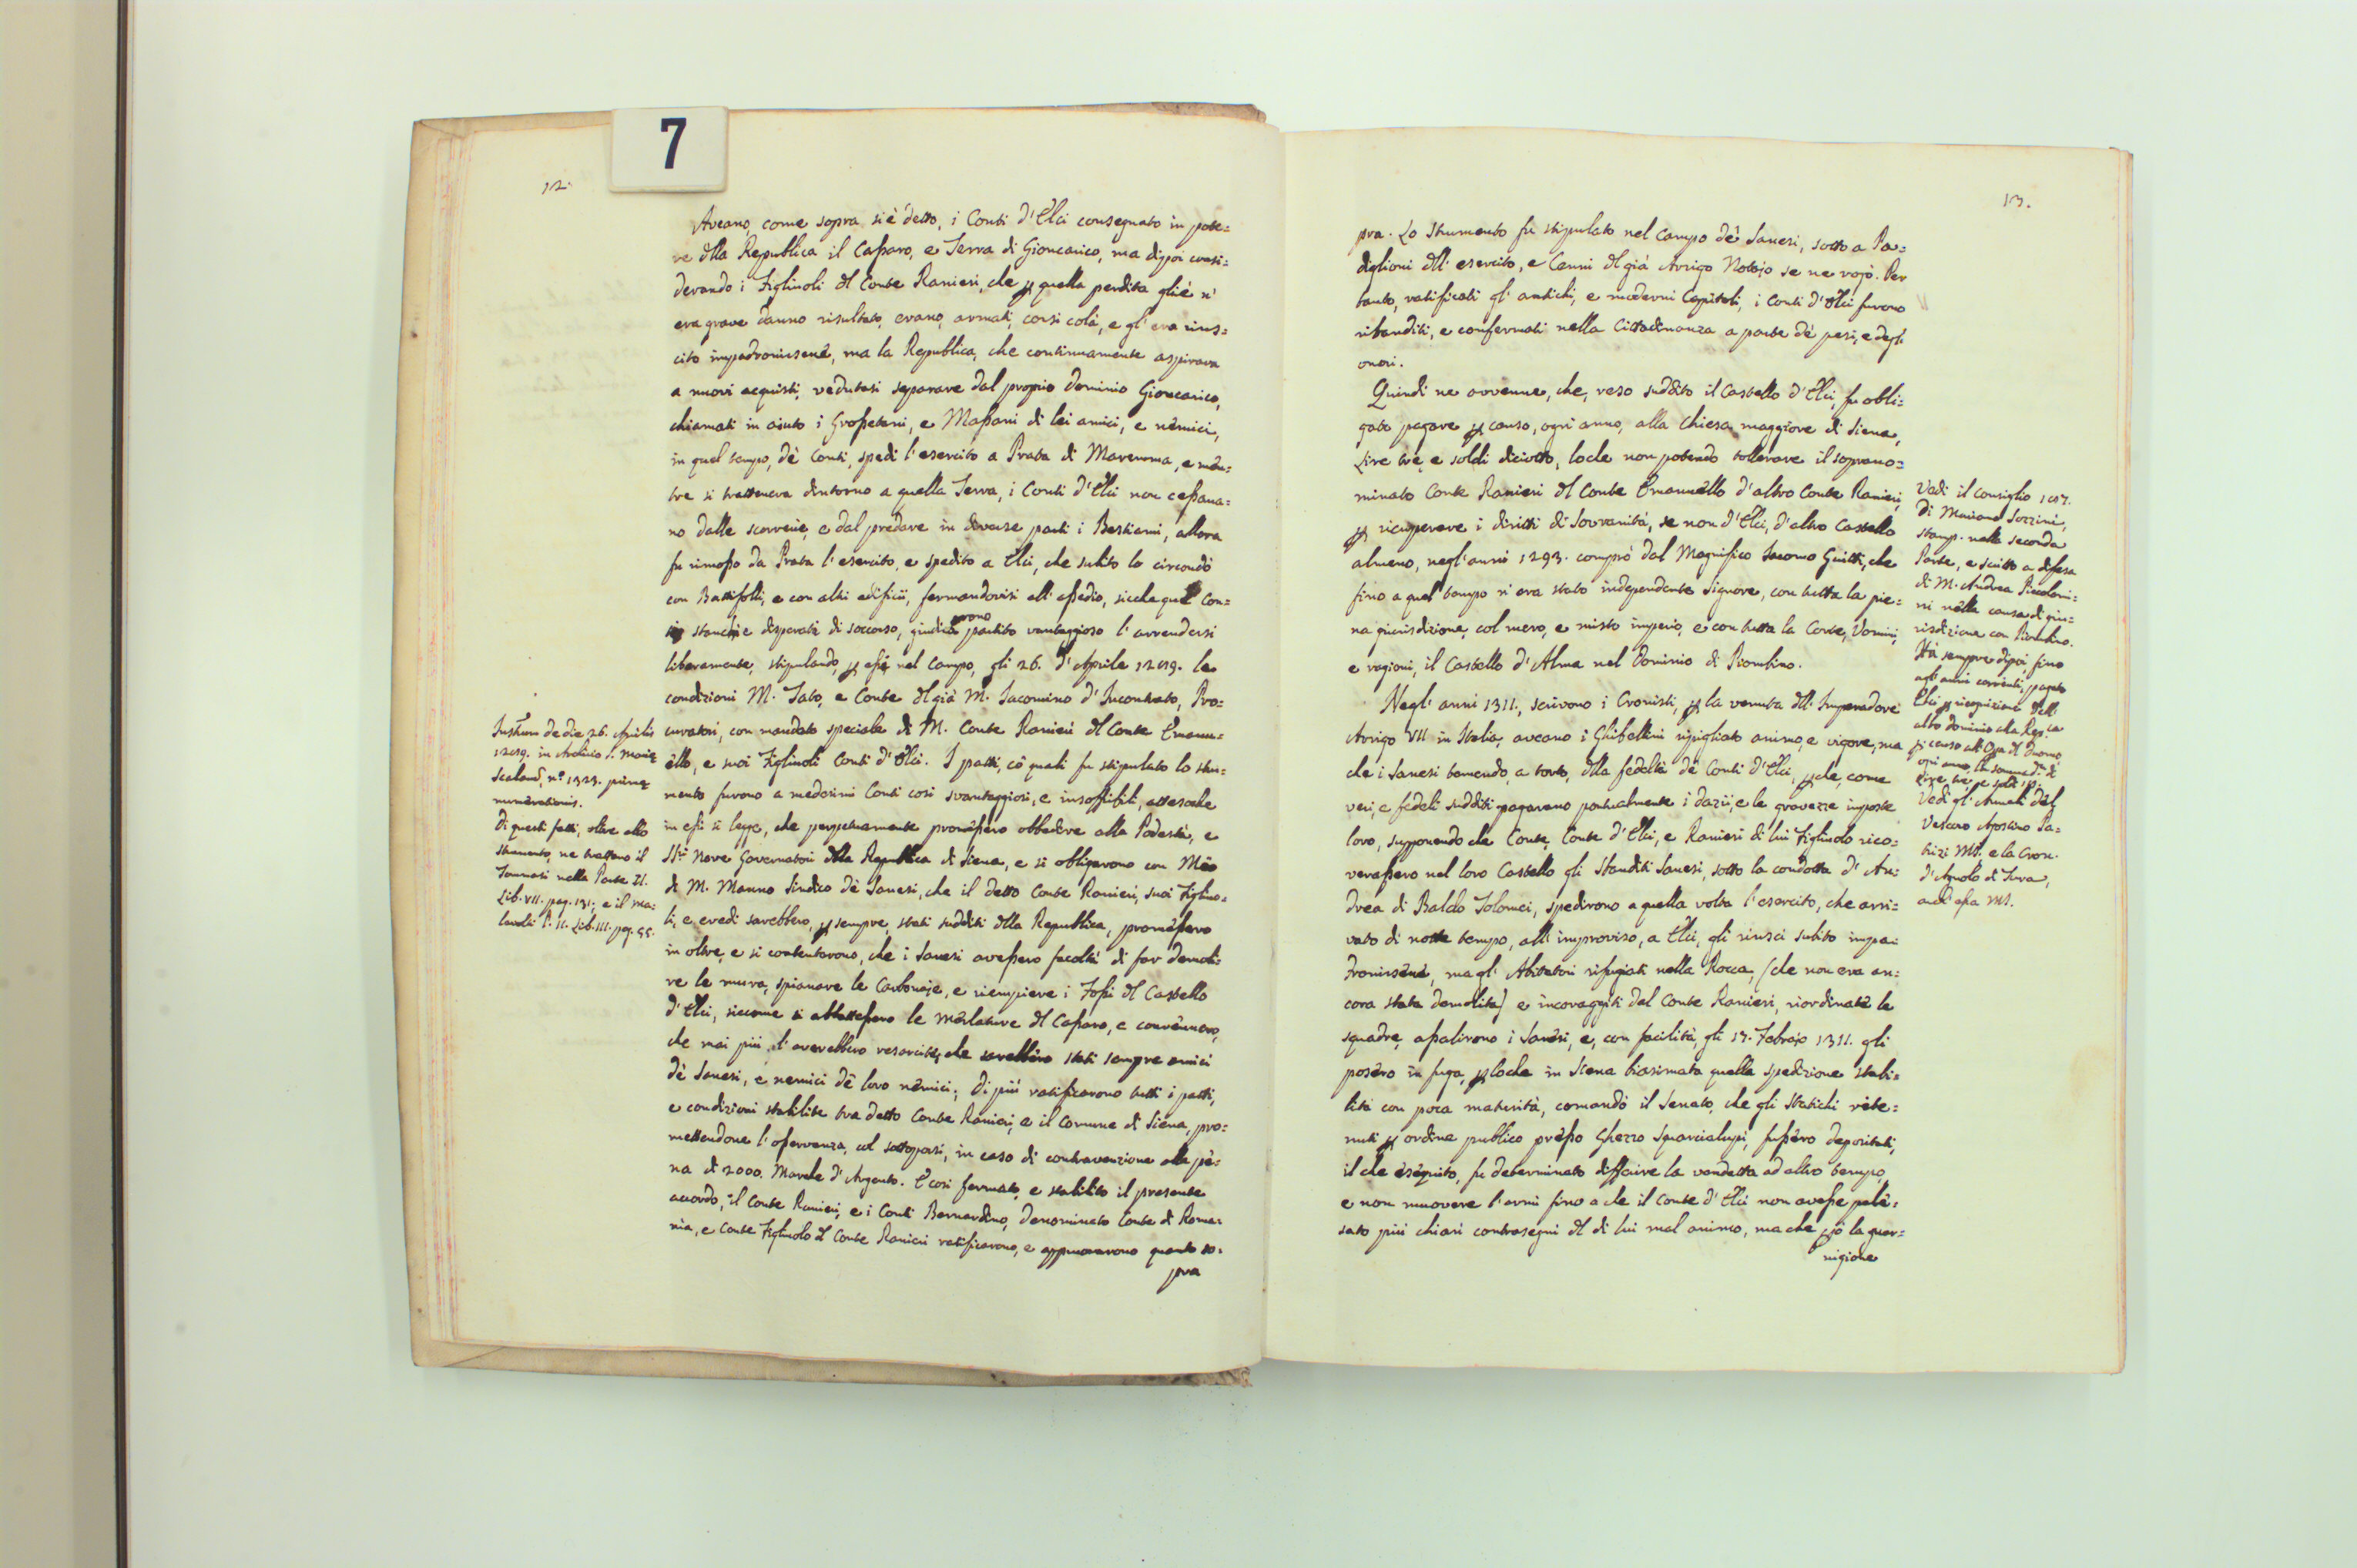 7
12.
Aveano, come sopra si è detto, i Conti d'Elci consegnato in pote=
re dlla Republica il Cassaro, e Terra di Gioncarico, ma dipoi consi=
derando i Figlinoli dl Conte Ranieri, che p quella perdita gliè n'
era grave danno risultato, erano, armati, corsi colà, e gl'era rius=
cito impadronirsenè, ma la Republica, che continuamente aspirava
a nuovi acquisti, vedutasi separare dal proprio dominio Gioncarico,
chiamati in aiuto i Grossetani, e Massani di lei amici, e nèmici,
in quel tempo, dè Conti, spedì l'esercito a Prata di Maremma, e mèn=
tre si tratteneva dintorno a quella Terra, i Conti d'Elci non cessava=
no dalle scorrerie, e dal predare in diverse parti i Bestiami, allora
fu rimosso da Prata l'esercito, e spedito a Elci, che subito lo circondò
con Battifolli, e con altri edificii, fermandovisi all'assedio, sicche quel Con=
ti stanchi e disperati di soccorso, giudicarono partito vantaggioso l'arrendersi
liberamente, stipulando, p essi nel campo, gli 26. d'Aprile 1289. le
condizioni M. Tato, e Conte dl già M. Iacomino d'Incontrato, Pro=
curatori, con mandato speciale di M. Conte Ranieri dl Conte Emanu=
èllo, e suoi Figlinoli Conti d'Elci. I patti, cô quali fu stipulato lo stru=
mento furono a medesimi Conti così svantaggiosi, e insoffribili, attesoche
in essi si legge, che perpetuamente promèssero obbedire alla Podestà, e
SS.ri Nove Governatori dlla Republica di Siena, e si obligarono con Mèo
di M. Manno Sindico dè Sanesi, che il detto Conte Ranieri, suoi Figlino=
li, e eredi sarebbero, p sempre, stati sudditi dlla Republica, promèssero
in oltre, e si contentarono, che i Sanesi avessero facoltà di far demoli=
re le mura, spianare le Carbonaje, e riempiere i Fossi dl Castello
d'Elci, siccome si abbattessero le mèrlature dl Cassaro, e convènnero,
che mai più l'averebbero resarcite, che sarebbèro stati sempre amici
dè Sanesi, e nemici dê loro nèmici; Di più ratificarono tutti i patti,
e condizioni stabilite tra detto Conte Ranieri, e il Comune di Siena, pro=
mettendone l'osservanza, col sottoporsi, in caso di contravenzione alla pè=
na di 2000. Marche d'Argento. E così fermato, e stabilito il presente
accordo, il Conte Ranieri, e i Conti Bernardino, denominato Conte di Roma=
nia, e Conte Figlinolo dl Conte Ranieri ratificarono, e approvarono quanto so=
pra
Instrum de die 26. Aprilis
1289. in Archivio S. Marię
Scalarũ, nº. 1323. primę
numerationis.
Di questi fatti, oltre allo
strumento, ne trattano il
Tommasi nella Parte II.
Lib. VII. pag. 131; e il Ma=
lavolti P. II. Lib. III. pag. 55.
13.
pra. Lo strumento fu stipulato nel Campo dè Sanesi, sotto a Pa=
diglioni dll' esercito, e Cenni dl già Arrigo Notajo se ne rogò. Per
tanto, ratificati gl'antichi, e moderni Capitoli, i Conti d'Elci furono
ribanditi, e confermati nella Cittadinanza a parte dè pesi, e degli
onori.
Quindi ne avvenne, che, reso suddito il Castello d'Elci, fu obli=
gato pagare p censo, ogni anno, alla Chiesa maggiore di Siena,
Lire tre, e soldi diciotto, loche non potendo tollerare il soprano=
minato Conte Ranieri dl Conte Emanuèllo d'altro Conte Ranieri,
p ricuperare i diritti di Sovranità, se non d'Elci, d'altro Castello
almeno, negl'anni 1293. comprò dal Magnifico Iacomo Guitti, che
fino a quel tempo n'era stato independente Signore, con tutta la pie=
na giurisdizione, col mero, e misto imperio, e con tutta la Corte, Uomini,
e ragioni, il Castello d'Alma nel Dominio di Piombino.
Negl'anni 1311., scrivono i Cronisti, p la venuta dll' Imperadore
Arrigo VII in Italia, aveano i Ghibellini ripigliato animo, e vigore, ma
che i Sanesi temendo, a torto, dlla fedeltà dè Conti d'Elci, p che, come
veri, e fedeli sudditi pagavano pontualmente i dazii, e le gravezze imposte
loro, supponendo che Conte, Conte d'Elci, e Ranieri di lui Figlinolo rico=
verassero nel loro Castello gli Sbanditi Sanesi, sotto la condotta d'An=
drea di Baldo Tolomei, spedirono a quella volta l'esercito, che arri=
vato di notte tempo, all'improviso, a Elci, gli riuscì subito impa=
dronirsènè, ma gl'Abitatori rifugiati nella Rocca, (che non era an=
cora stata demolita) e incoraggiti dal Conte Ranieri, riordinatè le
squadre, assalirono i Sanèsi, e, con facilità, gli 17. Febrajo 1311. gli
posèro in fuga, p loche in Siena biasimata quella spedizione stabi=
lita con poca maturità, comandò il Senato, che gli Statichi rite=
nuti p ordine publico prèsso Ghezzo Squarcialupi, fussèro depositati,
il che èsèguito, fu determinato differire la vendetta ad altro tempo,
e non muovere l'armi fino a che il Conte d'Elci non avesse palè=
sato più chiari contrasegni dl di lui mal animo, ma che pò la guar=
nigione
Vedi il Consiglio 107.
di Mariano Sozzini,
stamp. nella seconda
Parte, e scritto a difesa
di M. Andrea Piccolomi=
ni nèlla causa di giu=
risdizione con Piombino.
Hà sempre dipoi, fino
agl'anni correnti, pagato
Elci p ricognizione dell'
alto dominio alla Rep.ca
p censo all'Opa dl Duomo,
ogni anno, la somma dt.a di
Lire tre, e soldi 18.
Vedi gl'Annali dèl
Vescovo Agostino Pa=
trizi MS. e la Cron.
d'Agnolo di Tura,
anch'essa MS.